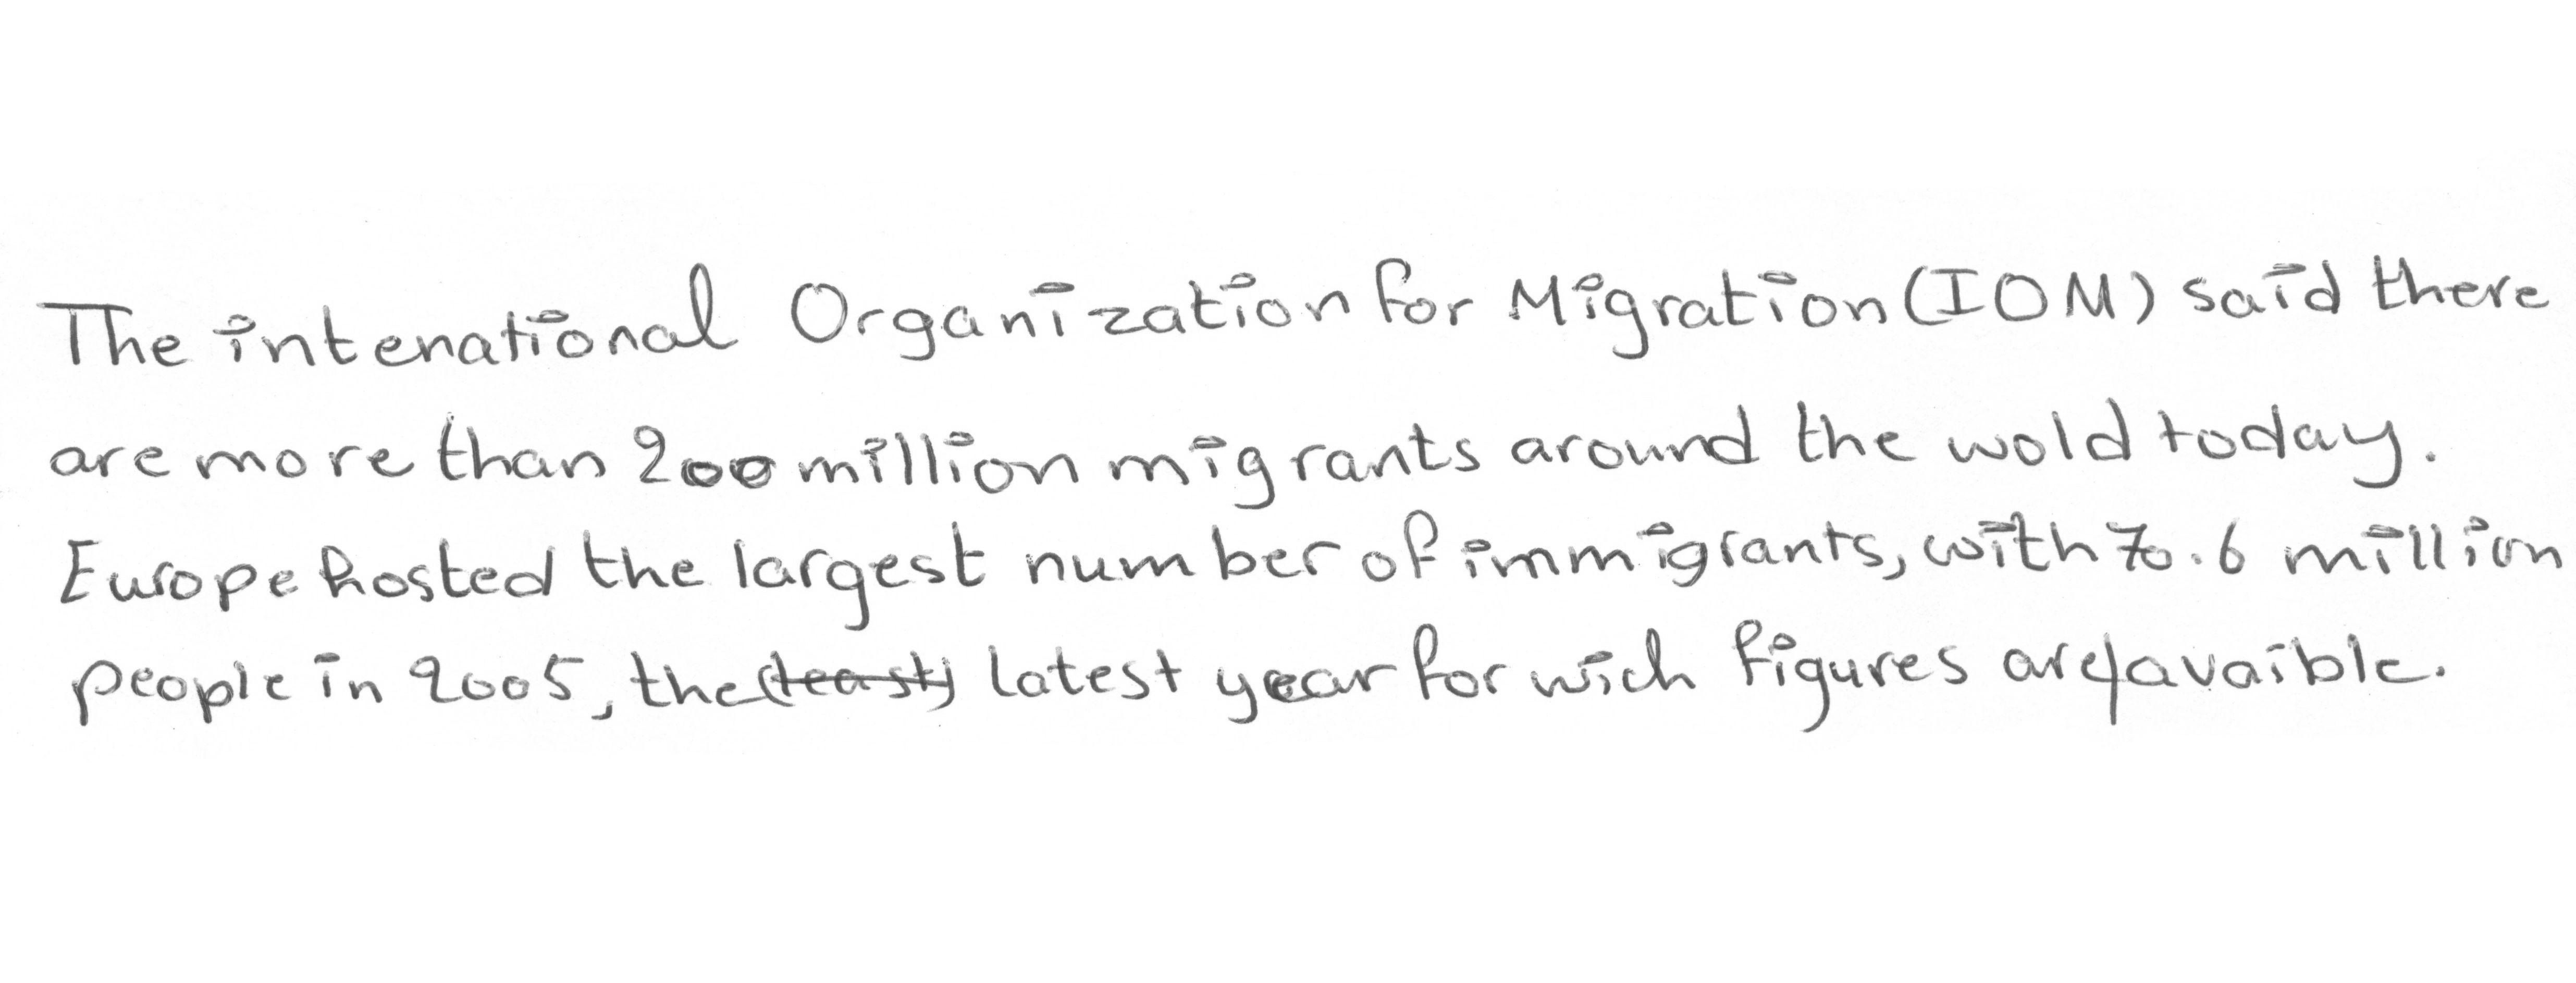 The intenational Organization for Migration (IOM) said there
are more than 200 million migrants around the wold today.
Europe hosted the largest number of immigrants, with 70.6 million
people in 2005, the latest year for wich figures are/avaible.